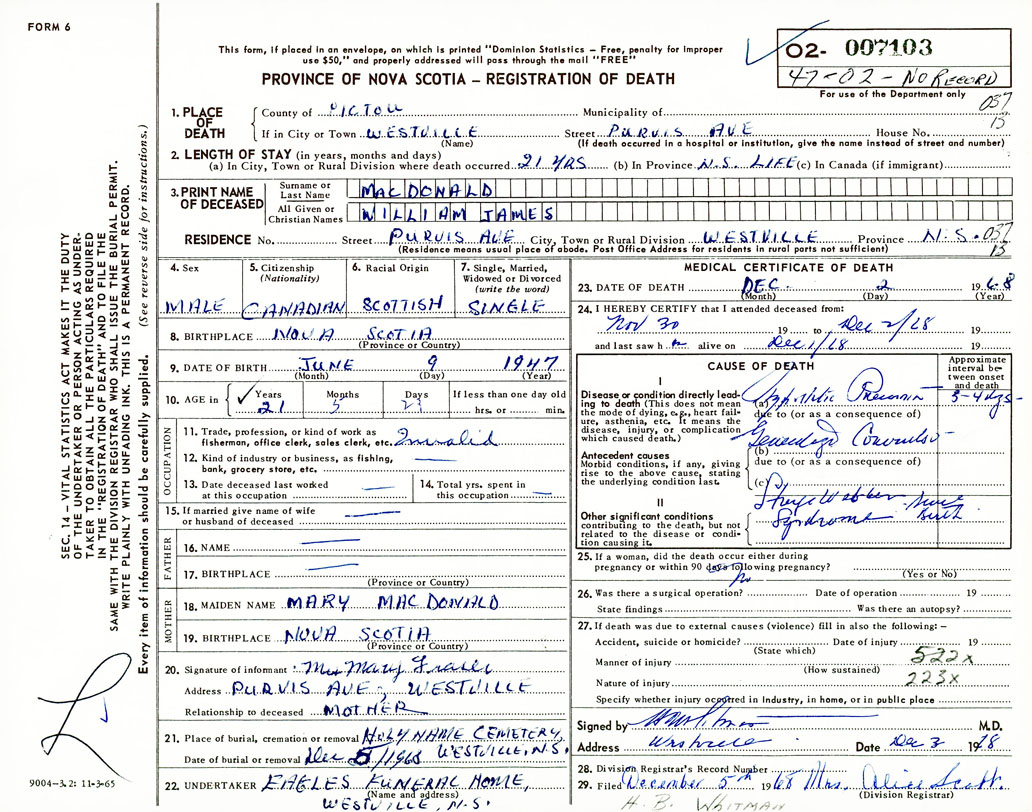 FORM 6
This form, if placed in an envelope, on which is printed "Dominion Statistics — Free, penalty for improper
use $50," and properly addressed will pass through the mail "FREE"
PROVINCE OF NOVA SCOTIA — REGISTRATION OF DEATH
02- 007103
47-02-NO RECORD
For use of the Department only
037
13
1. PLACE OF DEATH
County of PICTOU Municipality of
If in City or Town WESTVILLE Street PURVIS AVE House No.
(Name) (If death occurred in a hospital or institution, give the name instead of street and number)
2. LENGTH OF STAY (in years, months and days)
(a) In City, Town or Rural Division where death occurred 21 YRS (b) In Province N.S. LIFE (c) In Canada (if immigrant)
3. PRINT NAME OF DECEASED
Surname or Last Name MACDONALD
All Given or Christian Names WILLIAM JAMES
RESIDENCE No. Street PURVIS AVE City, Town or Rural Division WESTVILLE Province N.S. 037
(Residence means usual place of abode. Post Office Address for residents in rural parts not sufficient) 13
SEC. 14 – VITAL STATISTICS ACT MAKES IT THE DUTY
OF THE UNDERTAKER OR PERSON ACTING AS UNDER-
TAKER TO OBTAIN ALL THE PARTICULARS REQUIRED
IN THE "REGISTRATION OF DEATH" AND TO FILE THE
SAME WITH THE DIVISION REGISTRAR WHO SHALL ISSUE THE BURIAL PERMIT.
WRITE PLAINLY WITH UNFADING INK. THIS IS A PERMANENT RECORD.
Every item of information should be carefully supplied. (See reverse side for instructions.)
4. Sex
MALE
5. Citizenship (Nationality)
CANADIAN
6. Racial Origin
SCOTTISH
7. Single, Married, Widowed or Divorced (write the word)
SINGLE
8. BIRTHPLACE NOVA SCOTIA
(Province or Country)
9. DATE OF BIRTH JUNE 9 1947
(Month) (Day) (Year)
10. AGE in ✓ Years Months Days If less than one day old
21 5 hrs. or min.
OCCUPATION
11. Trade, profession, or kind of work as
fisherman, office clerk, sales clerk, etc. Invalid
12. Kind of industry or business, as fishing,
bank, grocery store, etc. —
13. Date deceased last worked
at this occupation —
14. Total yrs. spent in
this occupation —
15. If married give name of wife
or husband of deceased —
FATHER
16. NAME —
17. BIRTHPLACE —
(Province or Country)
MOTHER
18. MAIDEN NAME MARY MACDONALD
19. BIRTHPLACE NOVA SCOTIA
(Province or Country)
20. Signature of informant: Mrs Mary Fraser
Address PURVIS AVE, WESTVILLE
Relationship to deceased MOTHER
21. Place of burial, cremation or removal HOLY NAME CEMETERY,
Date of burial or removal Dec 5/1968 WESTVILLE, N.S.
22. UNDERTAKER EAGLES FUNERAL HOME,
(Name and address)
WESTVILLE, N.S.
9004-3.2: 11-3-65
MEDICAL CERTIFICATE OF DEATH
23. DATE OF DEATH DEC. 2 1968
(Month) (Day) (Year)
24. I HEREBY CERTIFY that I attended deceased from:
Nov 30 19 to Dec 2/68 19
and last saw h alive on Dec 1/68 19
CAUSE OF DEATH
Approximate interval between onset and death
I
Disease or condition directly lead-
ing to death (This does not mean
the mode of dying, e.g., heart fail-
ure, asthenia, etc. It means the
disease, injury, or complication
which caused death.)
(a) Pneumonia 3-4 dys-
due to (or as a consequence of)
Generalized Convulsio
Antecedent causes
Morbid conditions, if any, giving
rise to the above cause, stating
the underlying condition last.
(b)
due to (or as a consequence of)
(c)
II
Other significant conditions
contributing to the death, but not
related to the disease or condi-
tion causing it.
Sturge Webber Since
Syndrome Birth
25. If a woman, did the death occur either during
pregnancy or within 90 days following pregnancy?
No (Yes or No)
26. Was there a surgical operation? Date of operation 19
State findings Was there an autopsy?
27. If death was due to external causes (violence) fill in also the following: —
Accident, suicide or homicide? Date of injury 19
(State which)
Manner of injury 522x
(How sustained)
Nature of injury 223x
Specify whether injury occurred in Industry, in home, or in public place
Signed by M.D.
Address Westville Date Dec 3 1968
28. Division Registrar's Record Number
29. Filed December 5th 1968 Mrs. Alice Scott.
(Division Registrar)
H. B. WHITMAN